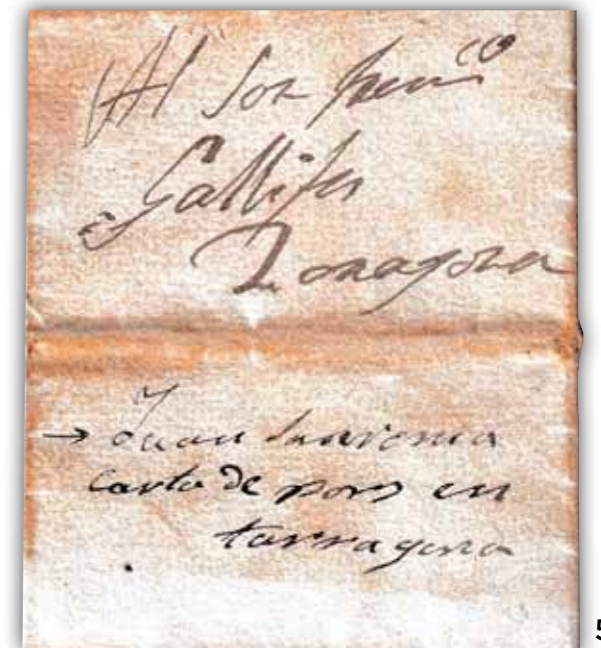 Al Sor fran^co
Gallifa
Taragona
→ Juan
carta de pors en
tarragona
5